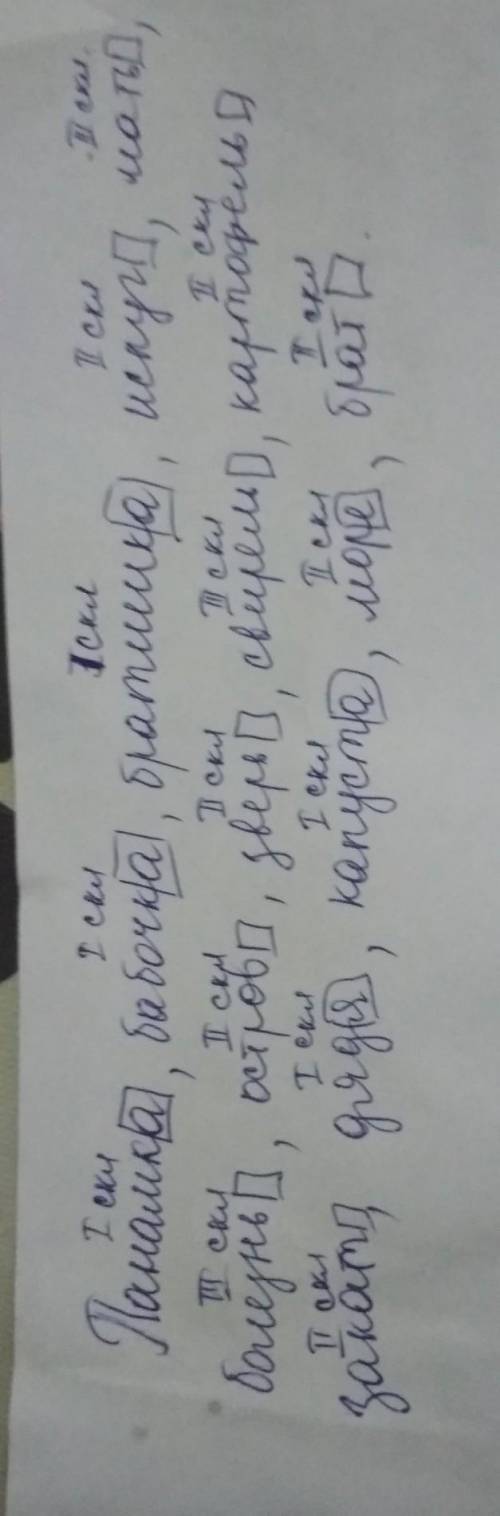 I скл I скл I скл II скл III скл.
Панамка, бабочка, братишка, испуг, мать,
III скл II скл II скл III скл II скл
болезнь, остров, зверь, свирель, картофель
II скл I скл I скл II скл II скл
закат, дядя, капуста, море, брат.